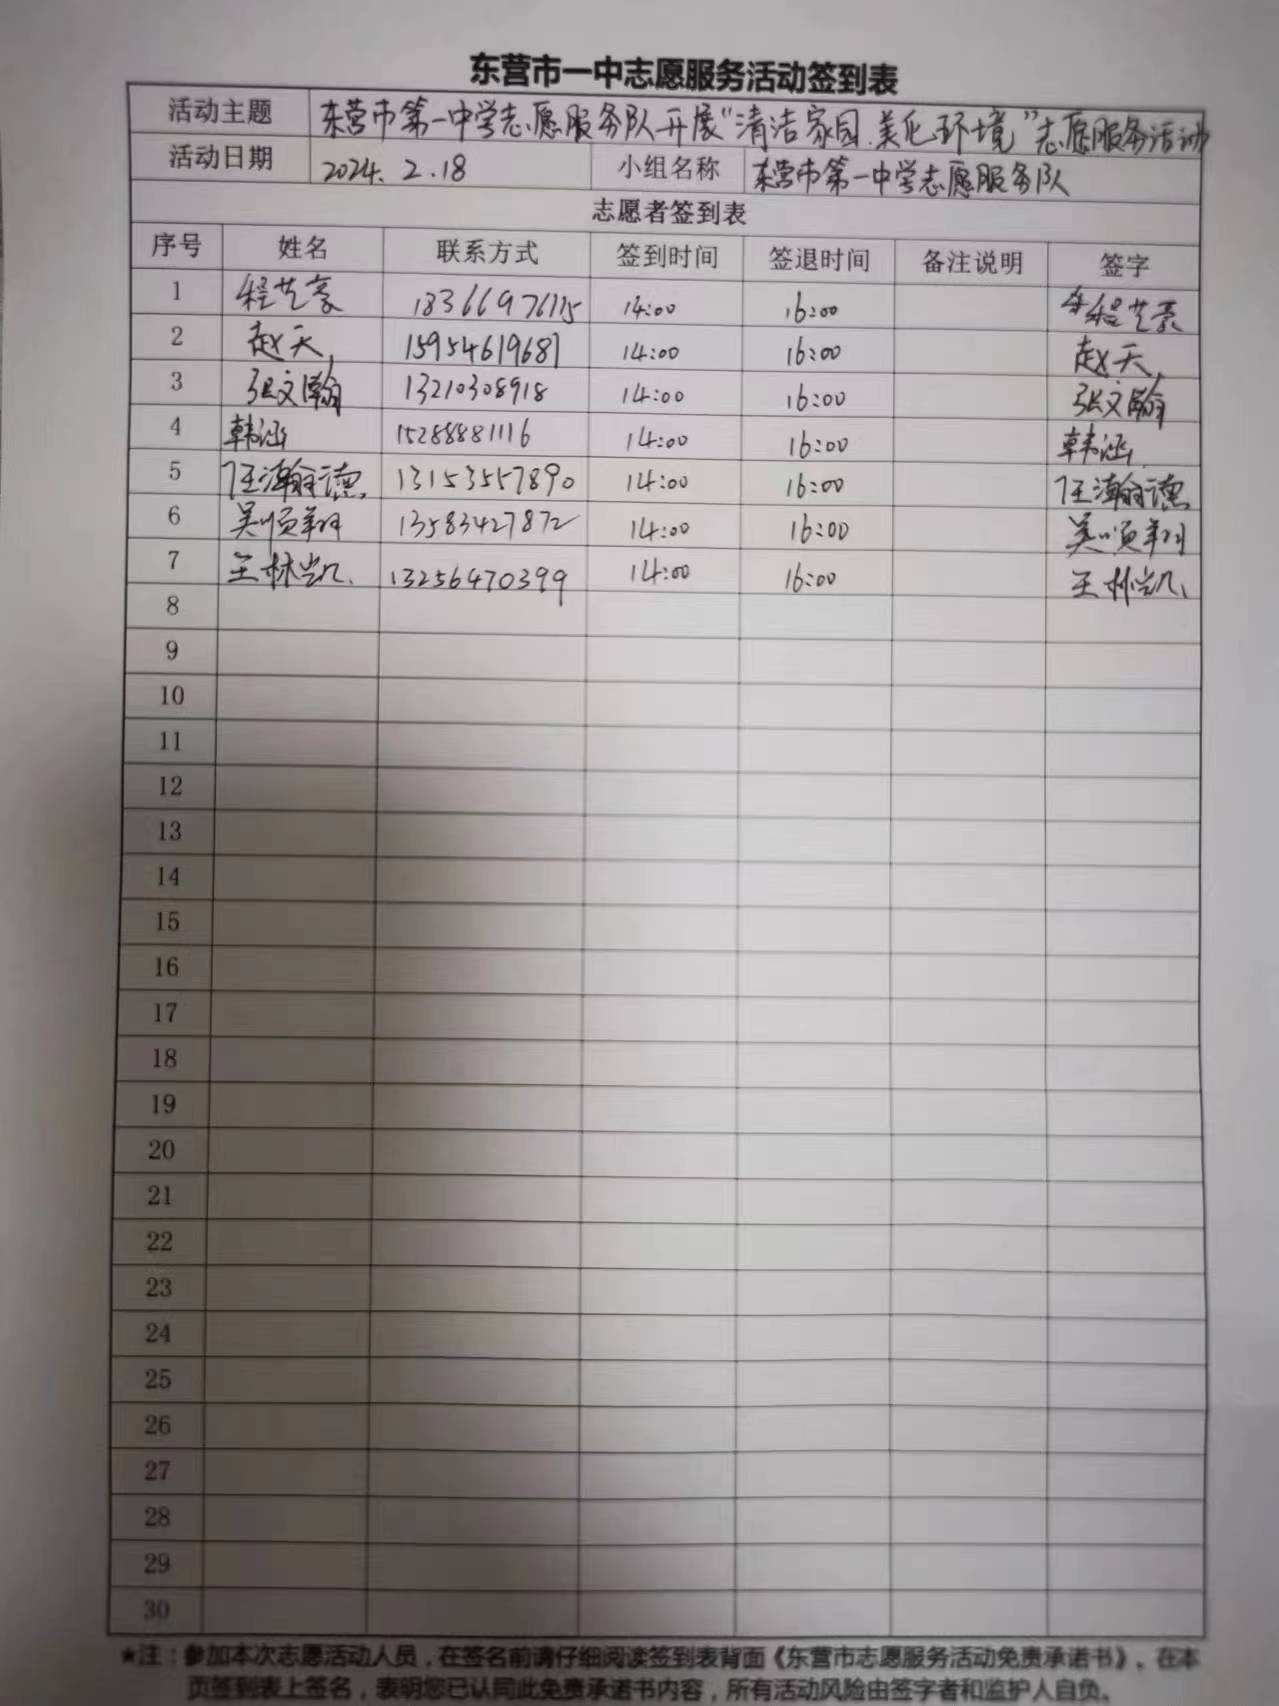 东营市一中志愿服务活动签到表
活动主题 东营市第一中学志愿服务队开展“清洁家园.美化环境”志愿服务活动
活动日期 2024.2.18 小组名称 东营市第一中学志愿服务队
志愿者签到表
序号 姓名 联系方式 签到时间 签退时间 备注说明 签字
1 程艺豪 18366976115 14:00 16:00 程艺豪
2 赵天 15954619687 14:00 16:00 赵天
3 张文瀚 13210308918 14:00 16:00 张文瀚
4 韩涵 15288881116 14:00 16:00 韩涵
5 任瀚德 13153557890 14:00 16:00 任瀚德
6 吴顺翔 13583427872 14:00 16:00 吴顺翔
7 王林凯 13256470399 14:00 16:00 王林凯
8
9
10
11
12
13
14
15
16
17
18
19
20
21
22
23
24
25
26
27
28
29
30
★注：参加本次志愿活动人员，在签名前请仔细阅读签到表背面《东营市志愿服务活动免责承诺书》。在本
页签到表上签名，表明您已认同此免责承诺书内容，所有活动风险由签字者和监护人自负。